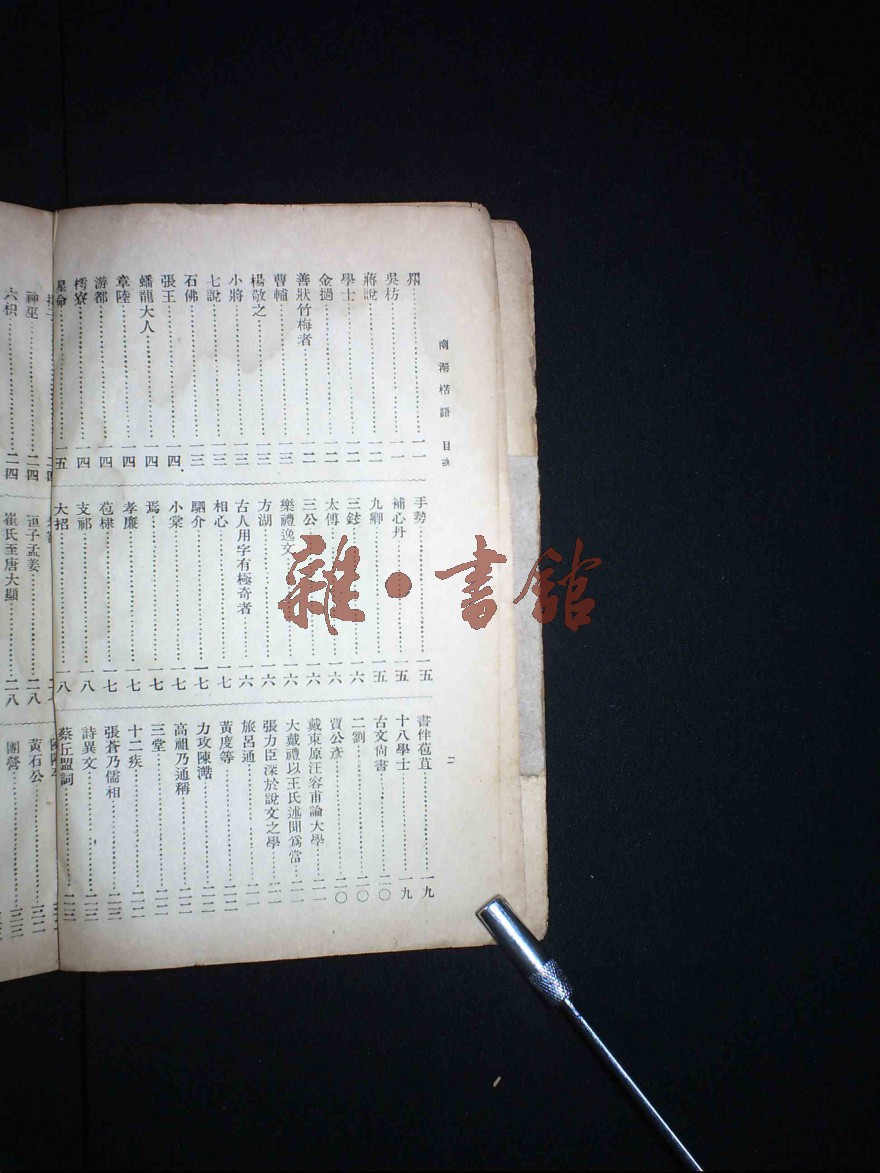 南漘楛語 目次
二
州……一一
吳枋……一一
蔣說……一二
學士……一二
金撾……一二
善狀竹梅者……一二
曹輔……一三
楊敬之……一三
小將……一三
七說……一三
石佛……一三
張王……一四
蟠龍大人……一四
章陸……一四
游都……一四
樗寮……一四
星命……一五
手勢……一五
補心丹……一五
九卿……一五
三鈘……一六
太傅……一六
三公……一六
樂禮逸文……一六
方湖……一六
古人用字有極奇者……一六
相心……一七
駟介……一七
小棠……一七
焉……一七
孝廉……一七
苞棣……一七
支祁……一八
大招……一八
書伴苞苴……一九
十八學士……一九
古文尙書……二〇
二劉……二〇
賈公彥……二〇
戴東原汪容甫論大學……二一
大戴禮以王氏述聞爲當……二一
張力臣深於說文之學……二一
旅呂通……二一
黃度等……二二
力攻陳澔……二二
高祖乃通稱……二二
三堂……二二
十二疾……二二
張蒼乃儒相……二三
詩異文……二三
蔡丘盟詞……二三
神巫……二四
六枳……二四
洹子孟姜……二八
崔氏至唐大顯……二八
黃石公……三二
團營……三三
雜·書館